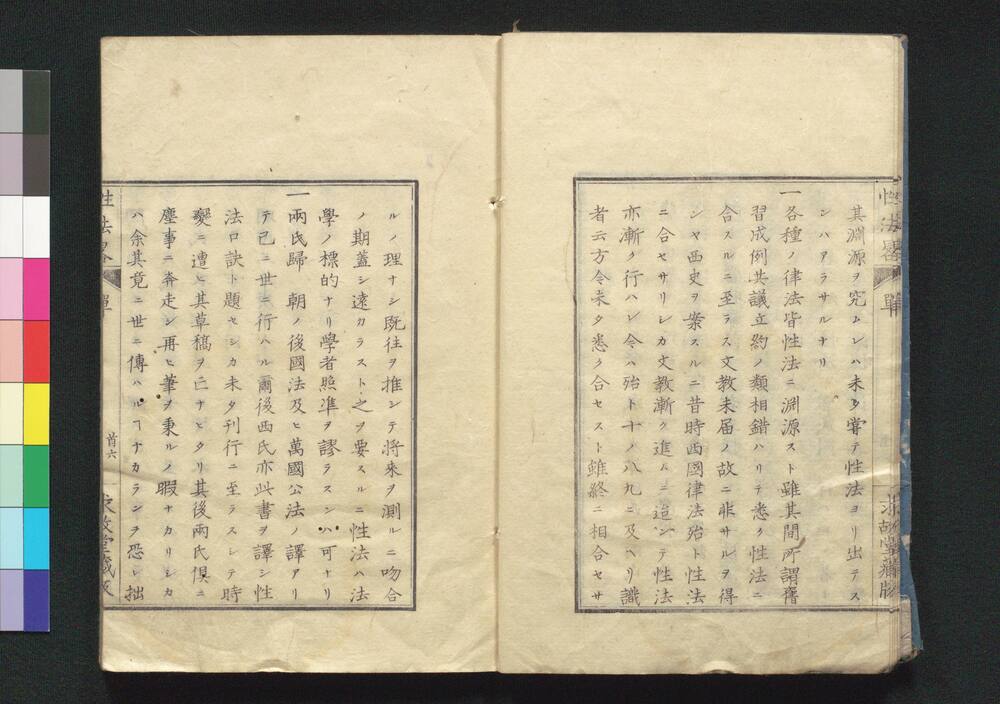 性法畧
單
求故堂藏版
其淵源ヲ究ムレハ未タ嘗テ性法ヨリ出テス
ンハアラサルナリ
一各種ノ律法皆性法ニ淵源スト雖其間所謂舊
習成例共議立約ノ類相錯ハリテ悉ク性法ニ
合スルニ至ラス文教未届ノ故ニ非サルヲ得
ンヤ西史ヲ案スルニ昔時西國律法殆ト性法
ニ合セサリシカ文教漸ク進ムニ迨ンテ性法
亦漸ク行ハレ今ハ殆ト十ノ八九ニ及ヘリ識
者云方今未タ悉ク合セスト雖終ニ相合セサ
ルノ理ナシ既往ヲ推シテ將來ヲ測ルニ吻合
ノ期蓋シ遠カラスト之ヲ要スルニ性法ハ法
學ノ標的ナリ學者照準ヲ謬ラスンハ可ナリ
一兩氏歸　朝ノ後國法及ヒ萬國公法ノ譯アリ
テ已ニ世ニ行ハル爾後西氏亦此書ヲ譯シ性
法口訣ト題セシカ未タ刊行ニ至ラスシテ時
變ニ遭ヒ其草稿ヲ亡ナヒタリ其後兩氏倶ニ
塵事ニ奔走シ再ヒ筆ヲ秉ルノ暇ナカリシカ
ハ余其竟ニ世ニ傳ハルヿナカランヲ恐レ拙
性法畧
單
首六
求故堂藏版